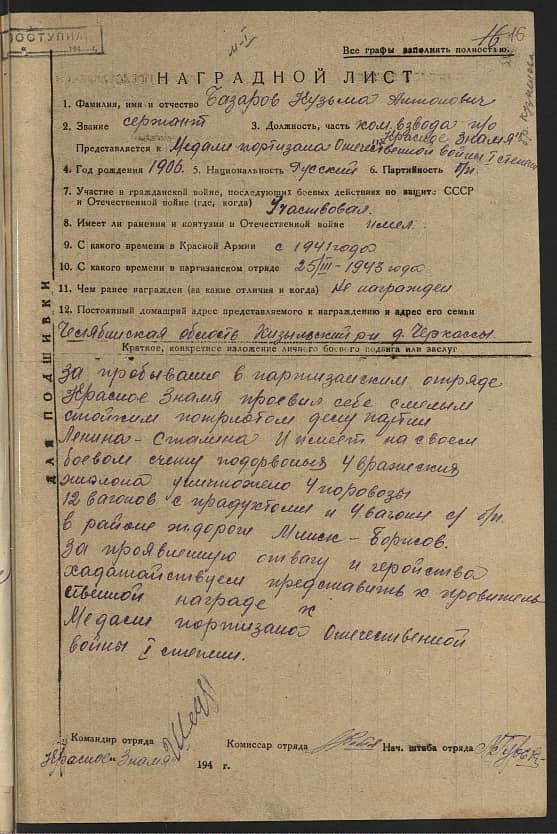 ПОСТУПИЛ
194
№ 1
16 16
Все графы заполнять полностью.
НАГРАДНОЙ ЛИСТ
1. Фамилия, имя и отчество Базаров Кузьма Антонович
2. Звание сержант 3. Должность, часть ком. взвода п/о
"Красное Знамя"
Представляется к Медали партизана Отечественной войны I степени
4. Год рождения 1906. 5. Национальность Русский 6. Партийность б/п.
7. Участие в гражданской войне, последующих боевых действиях по защите СССР
и Отечественной войне (где, когда) Участвовал.
8. Имеет ли ранения и контузии в Отечественной войне имел.
9. С какого времени в Красной Армии с 1941 года
10. С какого времени в партизанском отряде 25/III-1943 года
11. Чем ранее награжден (за какие отличия и когда) Не награжден
12. Постоянный домашний адрес представляемого к награждению и адрес его семьи
Челябинская область Кизыльский р-н д. Черкассы
Краткое, конкретное изложение личного боевого подвига или заслуг
За пробывание в партизанским отряде
Красное Знамя проевил себе смелым
стойким потриотом делу партии
Ленина-Сталина И имеет на своем
боевом счету подорвоных 4 вражеских
эшелона уничтожело 4 поровозы
12 вагонов с прадуктоми и 4 вагони с/
в районе ж.дороги Минск-Борисов.
За проявленную отвагу и геройства
хадатайствуем представить к провитель
ственной награде к
Медали партизана Отечественной
войны I степени.
ДЛЯ ПОДШИВКИ
Командир отряда Комиссар отряда Нач. штаба отряда
"Красное Знамя" 194 г.